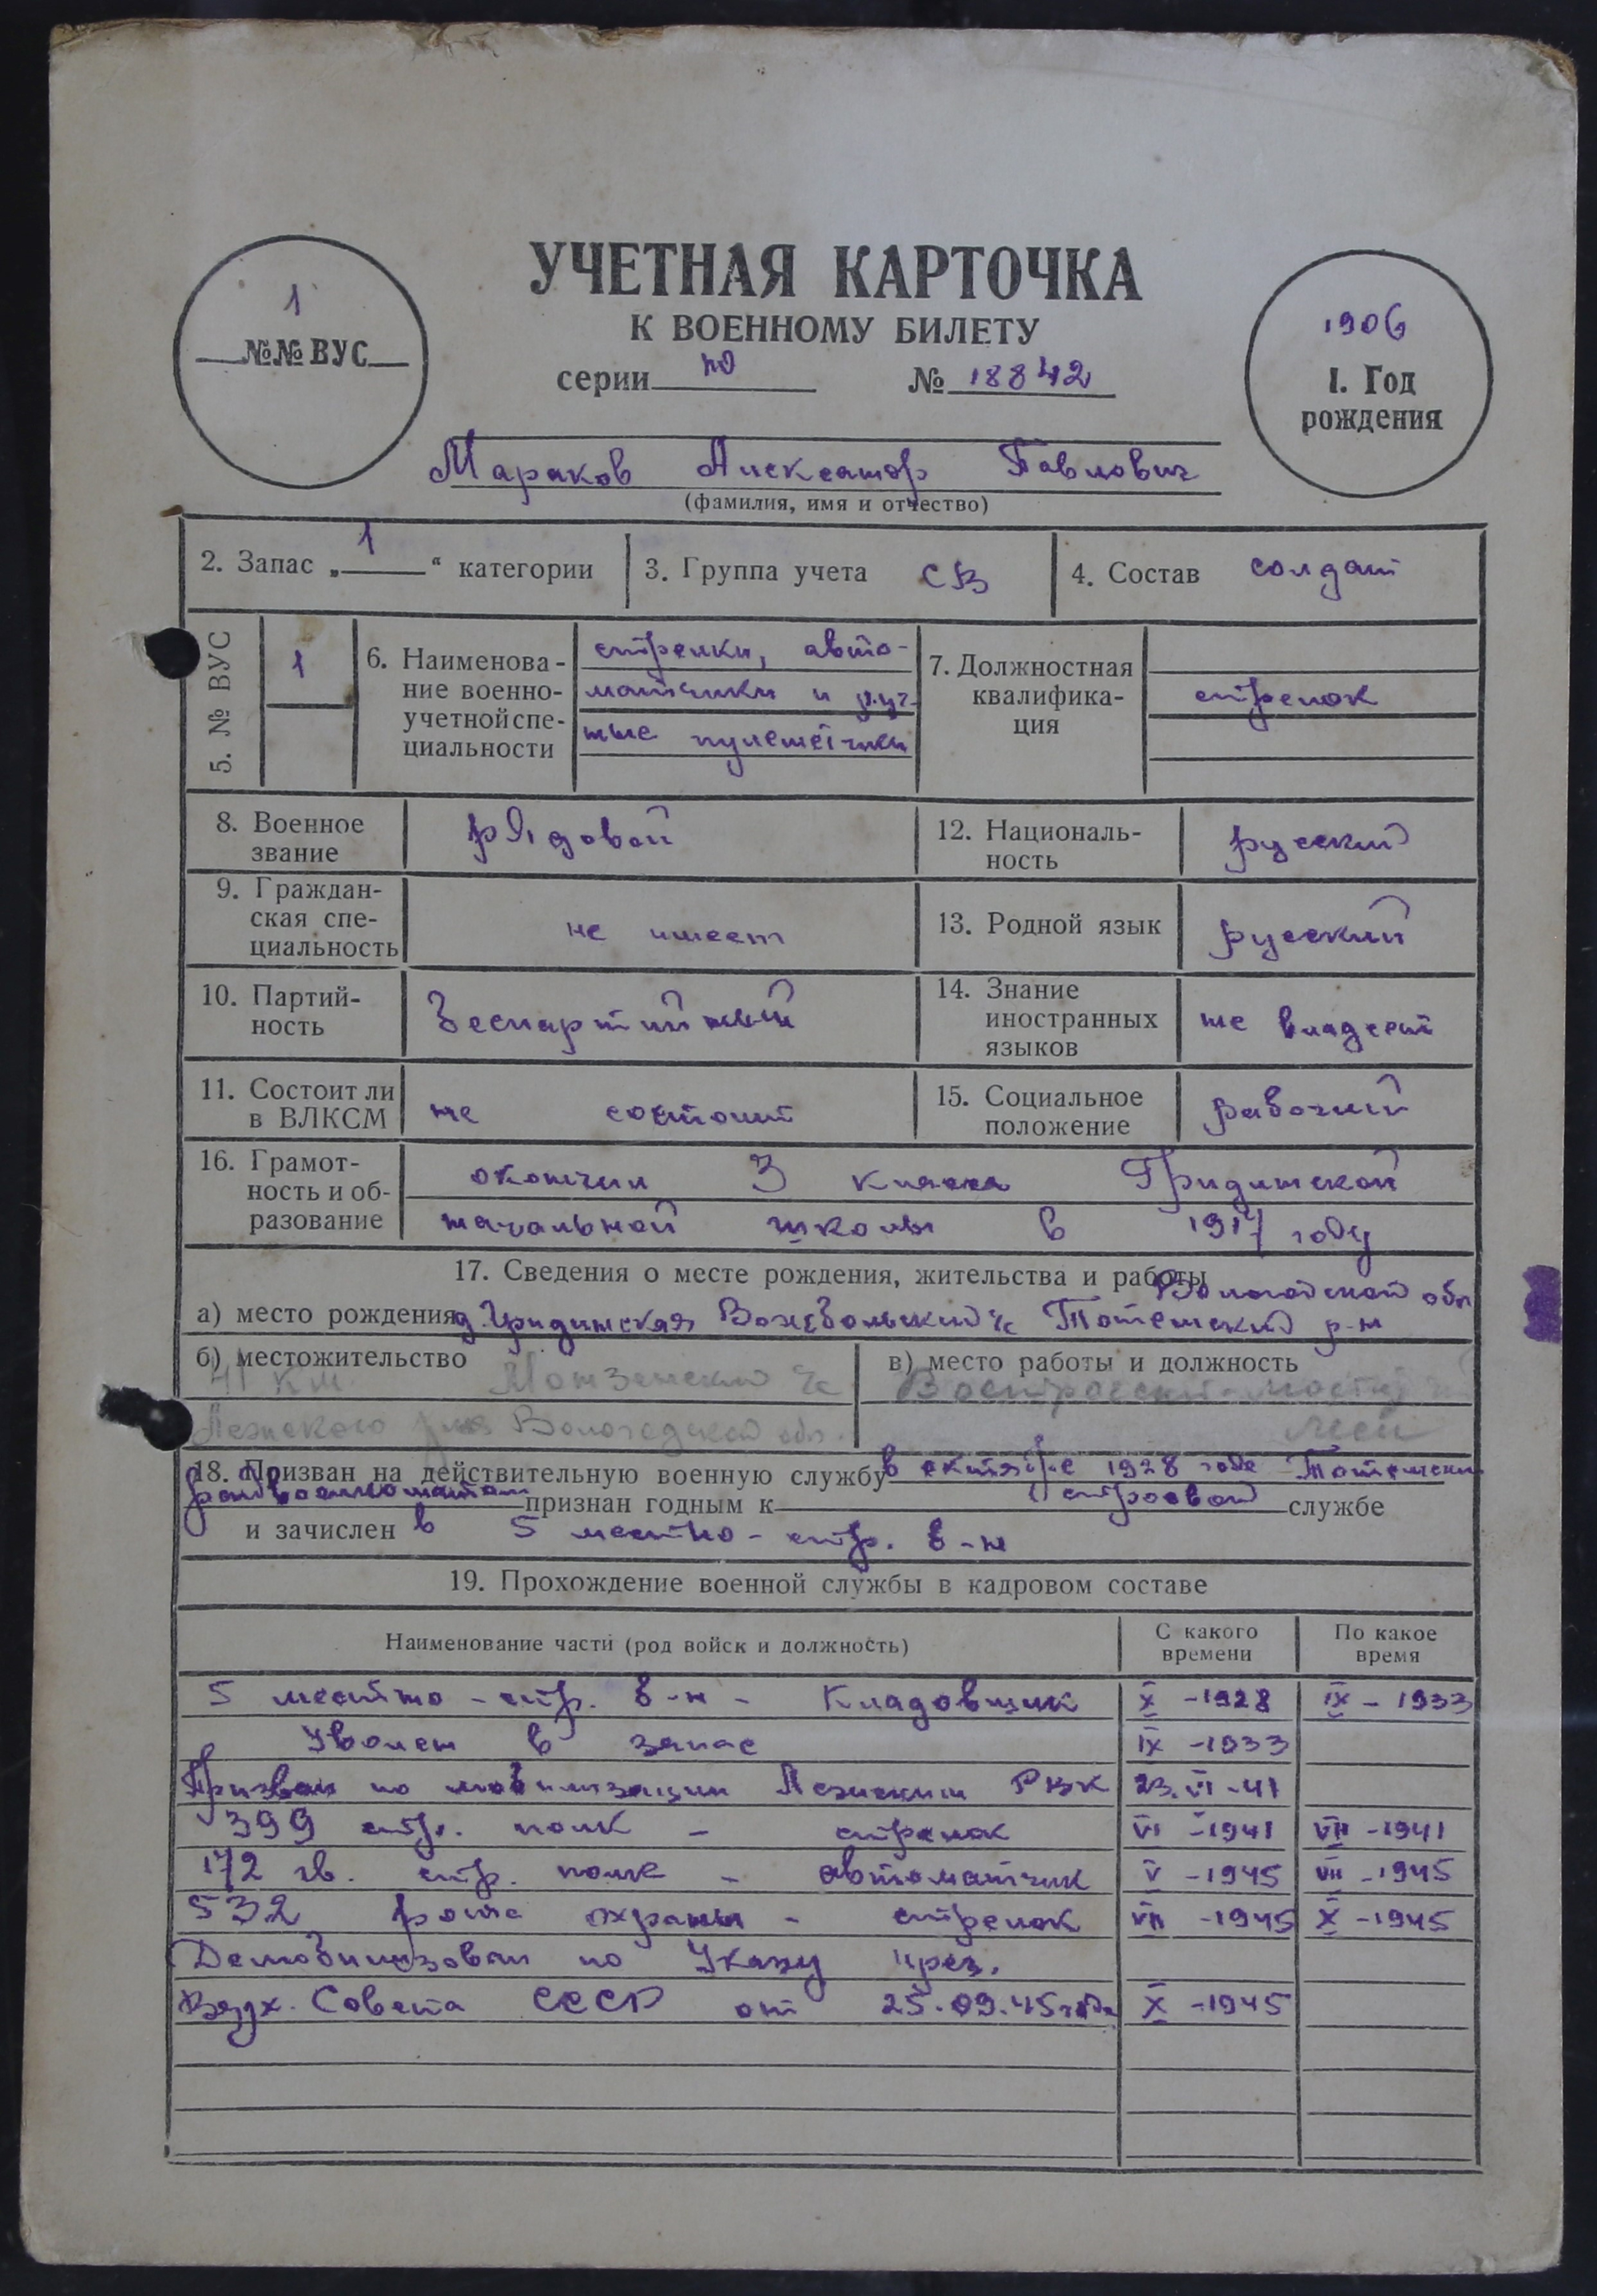 УЧЕТНАЯ КАРТОЧКА
К ВОЕННОМУ БИЛЕТУ
1
№№ ВУС
серии № 18842
1906
1. Год
рождения
Мараков Александр Павлович
(фамилия, имя и отчество)
2. Запас „ 1 “ категории
3. Группа учета СВ
4. Состав солдат
5. № ВУС 1
6. Наименова-
ние военно-
учетной спе-
циальности
стрелки, авто-
матчики и руч-
ные пулеметчики
7. Должностная
квалифика-
ция
стрелок
8. Военное
звание
рядовой
12. Националь-
ность
русский
9. Граждан-
ская спе-
циальность
не имеет
13. Родной язык
русский
10. Партий-
ность
беспартийный
14. Знание
иностранных
языков
не владеет
11. Состоит ли
в ВЛКСМ
не состоит
15. Социальное
положение
рабочий
16. Грамот-
ность и об-
разование
окончил 3 класса Гридинской
начальной школы в 1917 году
17. Сведения о месте рождения, жительства и работы
Вологодской обл
а) место рождения д. Гридинская Вожбальский с/с Тотемский р-н
б) местожительство
41 км Монзенский с/с
Лежского р-на Вологодской обл.
в) место работы и должность
18. Призван на действительную военную службу в октябре 1928 года Тотемским
райвоенкоматом признан годным к строевой службе
и зачислен в 5 местно-стр. б-н
19. Прохождение военной службы в кадровом составе
Наименование части (род войск и должность)
С какого
времени
По какое
время
5 местно-стр. б-н - Кладовщик X -1928 IX - 1933
Уволен в запас IX -1933
Призван по мобилизации Лежским РВК 23.VI-41
399 стр. полк - стрелок VI -1941 VII -1941
172 гв. стр. полк - автоматчик V -1945 VII -1945
532 рота охраны - стрелок VII -1945 X -1945
Демобилизован по Указу през.
Верх. Совета СССР от 25.09.45 года X -1945